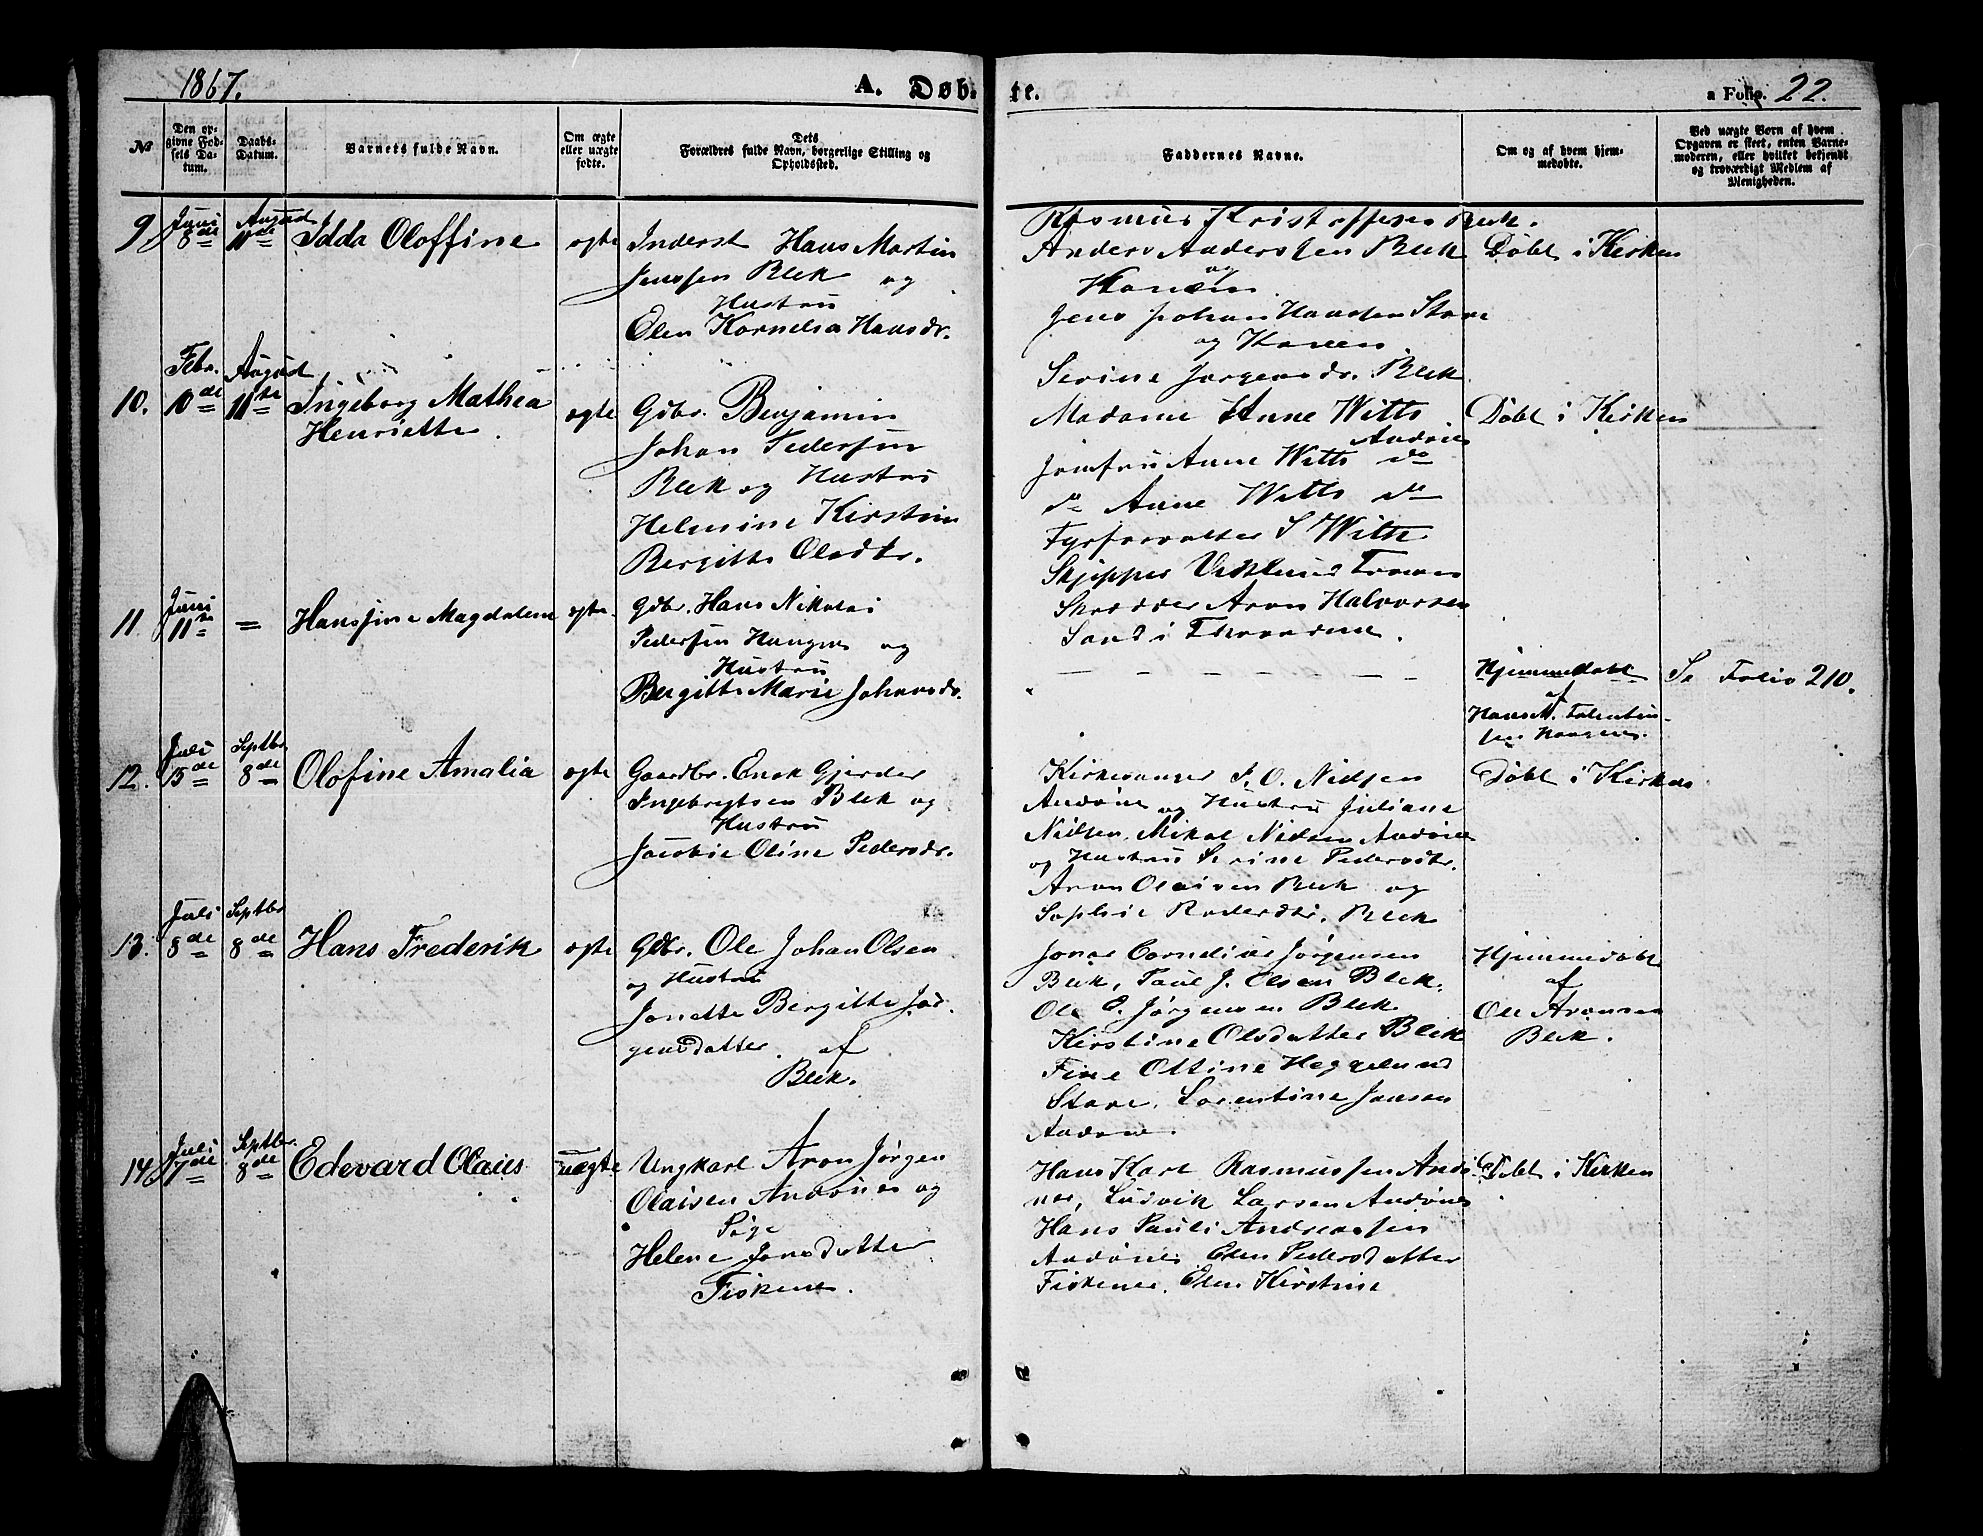 1867.
A. Døb-
te.
a Folio. 22.
No
Den op-
givne Fød-
sels Da-
tum.
Daabs-
Datum.
Barnets fulde Navn.
Om ægte
eller uægte
fødte.
Dets
Forældres fulde Navn, borgerlige Stilling og
Opholdssted.
Faddernes Navne.
Om og af hvem hjem-
medøbte.
Ved uægte Børn af hvem
Opgaven er skeet, enten Barne-
moderen, eller hvilket bekjendt
og troværdigt Medlem af
Menigheden.
9
Juni
8de
August
11de
Idda Oloffine
ægte
Inderst Hans Martin
Jenssen Bleik og
Hustru
Elen Kornelia Hansdr.
Rasmus Kristoffersen Bleik.
Anders Anderssen Bleik
og
Konen
Jens Johan Hansen Stave
og Konen
Serine Jørgensdr. Bleik
Døbt i Kirken
10.
Febr.
10de
August
11te
Ingeborg Mathea
Henriette
ægte
Gdbr. Benjamin
Johan Pedersen
Bleik og Hustru
Helmine Kirstine
Bergitte Olsdtr.
Madame Anne Witts
Andøen
Jomfru Anne Witts do
do Anne Witts do
Fyrforvalter S Witt
Skipper
Skrædder Aron Halvorsen
Sand i
Døbt i Kirken
11
Juni
11te
=
Hanssine Magdalena
ægte
Gdbr. Hans Nikolai
Pedersen Haugnes og
Hustru
Bergitte Marie Johansdr.
Hjemmedøbt
af
Hans
Haugnes.
Se Folio 210.
12.
Juli
15de
Septbr
8de
Olofine Amalia
ægte
Gaardbr. Enok Gjerder
Ingebrigtsen Bleik og
Hustru
Jacobie Oline Pedersdr.
Kirkesanger P. O. Nielsen
Andøen og Hustru Juliane
Nielsen, Mikal Nielsen Andøen
og Hustru Serine Pedersdtr.
Aron Olaisen Bleik og
Sophie Pedersdtr. Bleik
Døbt i Kirken
13.
Juli
8de
Septbr
8de
Hans Frederik
ægte
Gdbr. Ole Johan Olsen
og Hustru
Jonette Bergitte Jør-
gensdatter af
Bleik.
Jonas Cornelius Jørgensen
Bleik, Paul J. Olsen Bleik,
Ole P. Jørgensen Bleik
Kirstine Olsdatter Bleik
Fine Oltine Heggelund
Stave, Lorentine Jansen
Andøen.
Hjemmedøbt
af
Ole Aronsen
Bleik.
14
Juli
7de
Septbr.
8de
Edevard Olaus
uægte
Ungkarl Aron Jørgen
Olaisen Andønes og
Pige
Helene Jonsdatter
Fiskenes.
Hans Karl Rasmussen Andø-
nes, Ludvik Larsen Andønes
Hans Pauli Andreassen
Andønes Elen Pedersdatter
Fiskenes, Elen Kirstine
Døbt i Kirken